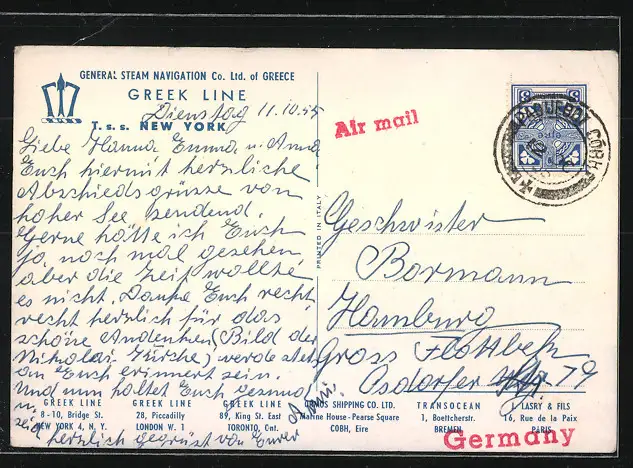 GENERAL STEAM NAVIGATION Co. Ltd. of GREECE
GREEK LINE
Dienstag 11.10.55
T.s.s. NEW YORK
Liebe Hanna Emma u. Anna
Euch hiermit herzliche
Abschiedsgrüsse von
hoher See sendend.
Gerne hätte ich Euch
ja noch mal gesehen,
aber die Zeit wollte
es nicht. Danke Euch recht,
recht herzlich für das
schöne Andenken (Bild der
Nikolai-Kirche) werde stets
an Euch erinnert sein.
Und nun haltet Euch gesund
u. seid
herzlich gegrüst von Eurer
PRINTED IN ITALY
Air mail
PAQUEBOT CÓBH
Geschwister
Bormann
Hamburg
Gross Flottbek
Osdorfer 79
Germany
GREEK LINE
8-10, Bridge St.
NEW YORK 4, N. Y.
GREEK LINE
28, Piccadilly
LONDON W. 1
GREEK LINE
89, King St. East
TORONTO, Ont.
SHIPPING CO. LTD.
Marine House - Pearse Square
COBH, Eire
TRANSOCEAN
1, Boettcherstr.
BREMEN
J. LASRY & FILS
16, Rue de la Paix
PARIS